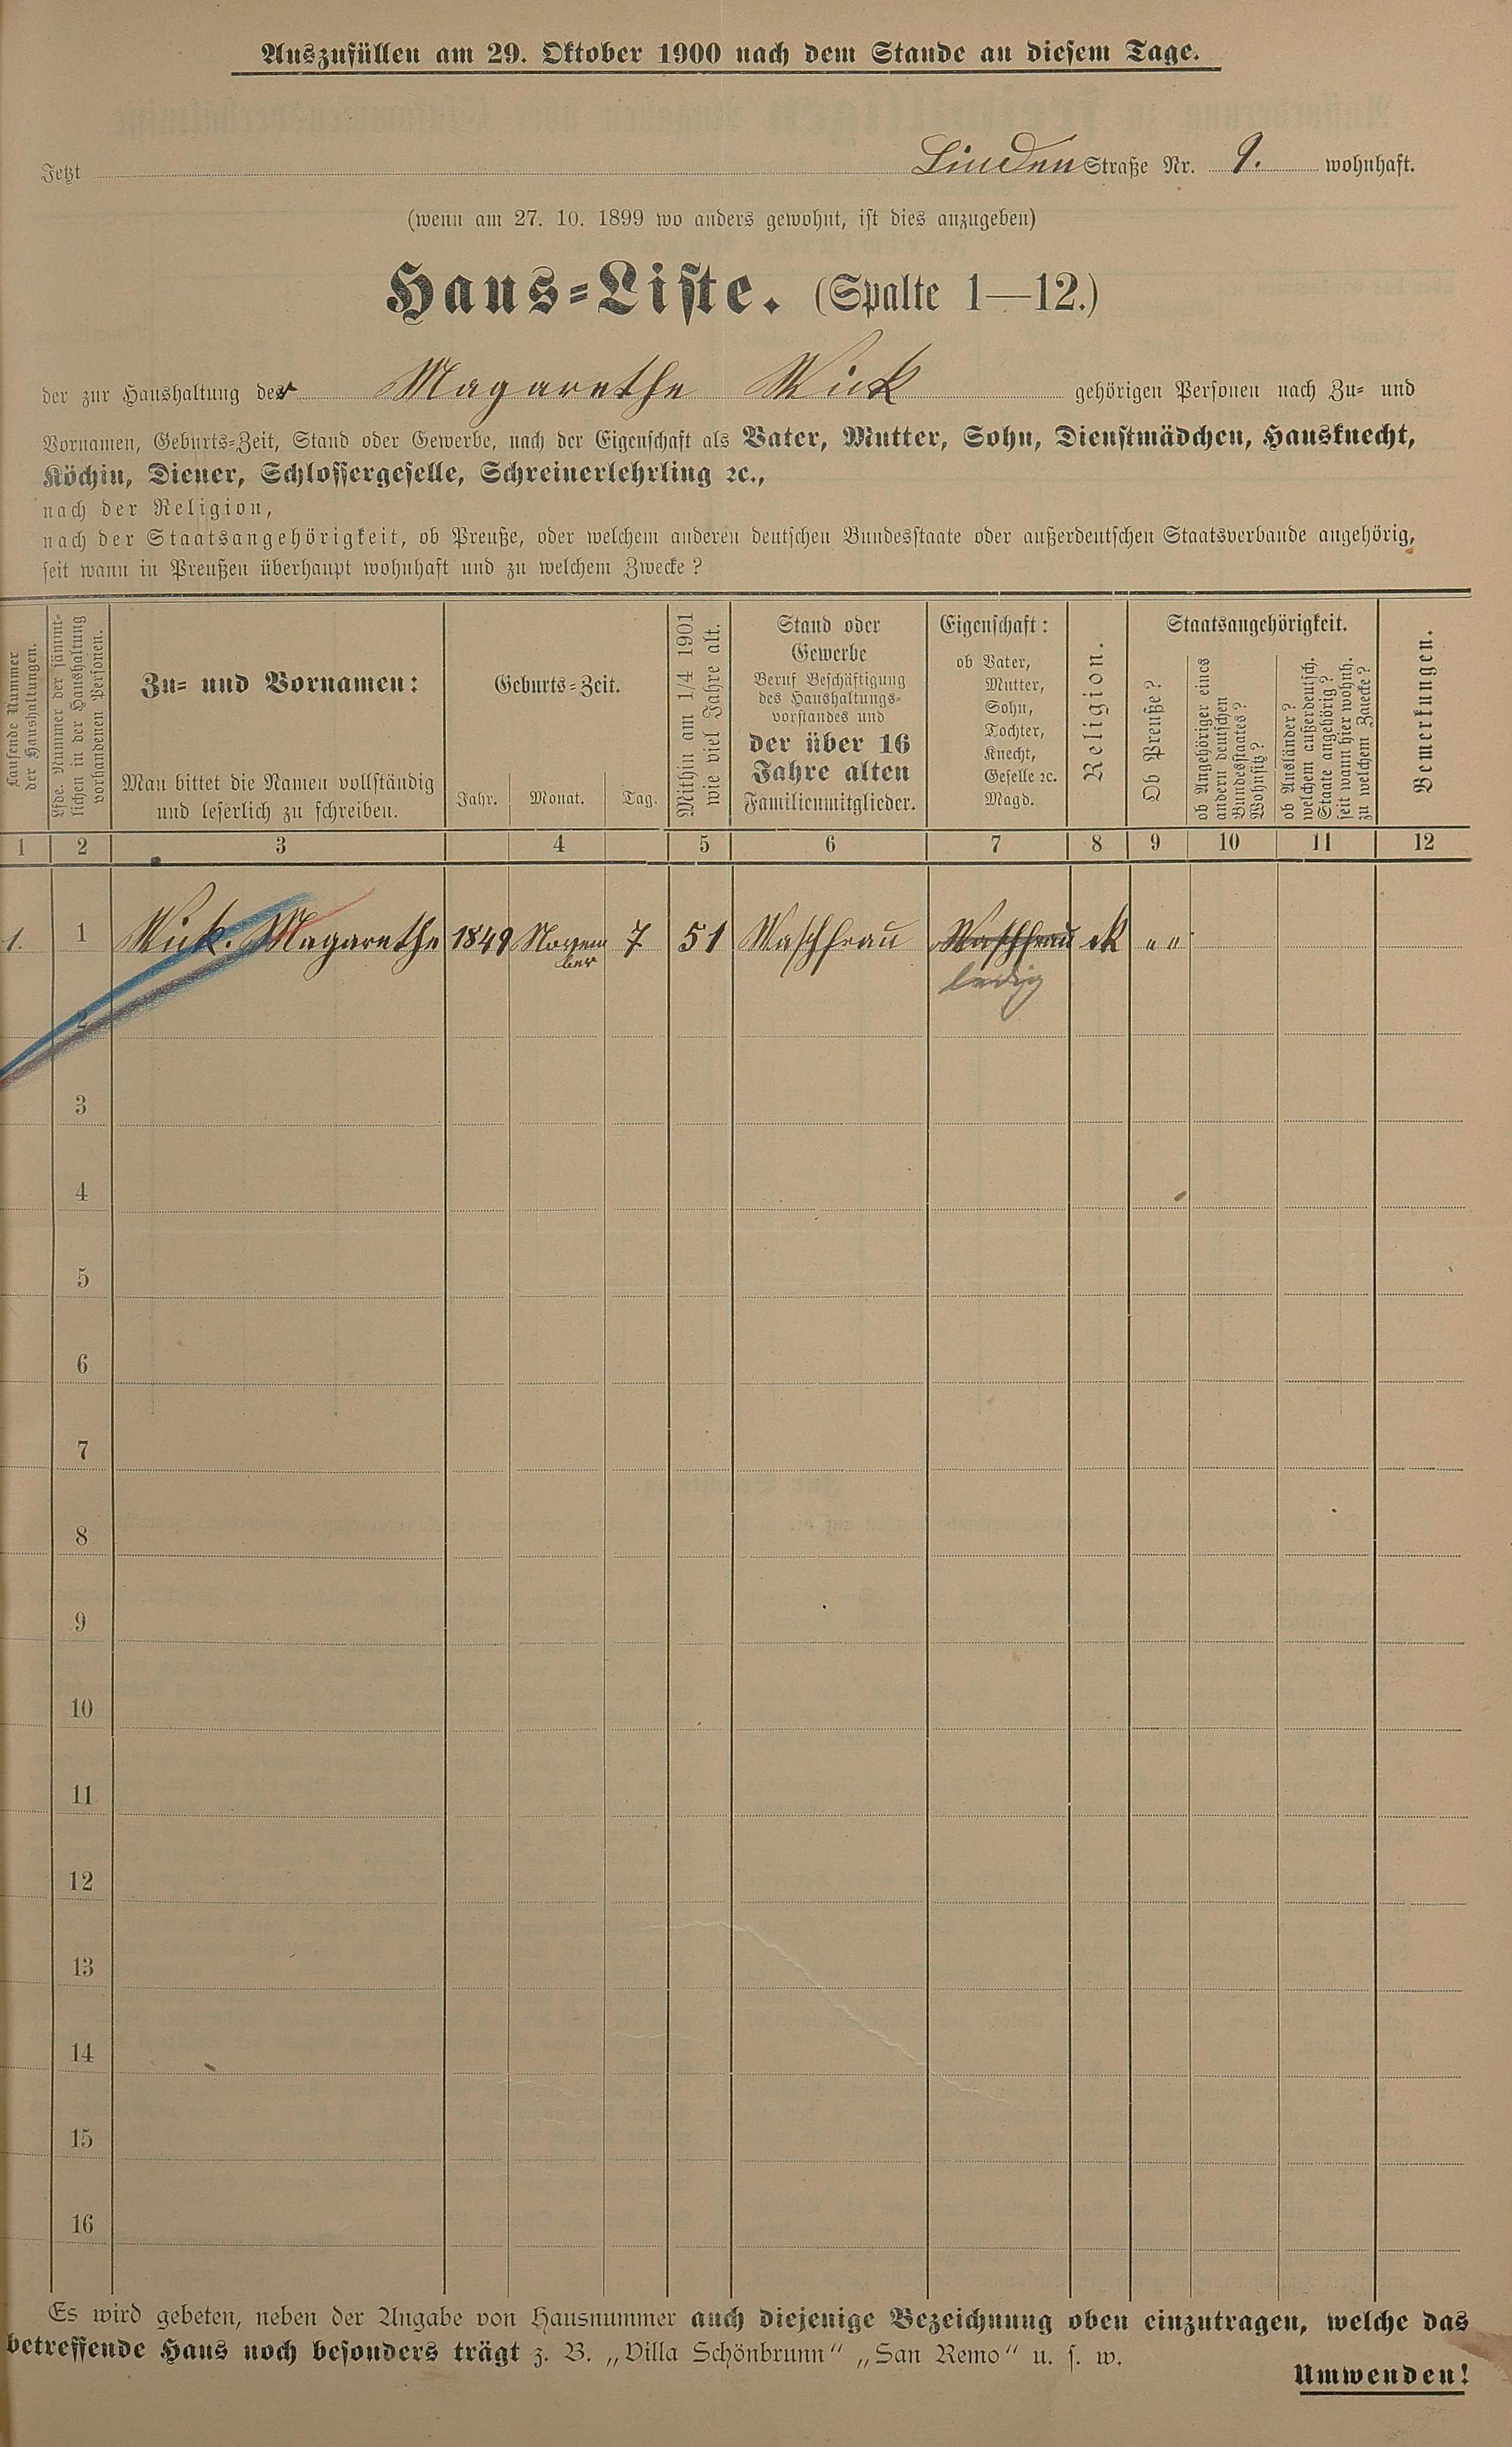 Auszufüllen am 29. Oktober 1900 nach dem Stande an diesem Tage.
Jetzt Linden Straße Nr. 9. wohnhaft.
(wenn am 27. 10. 1899 wo anders gewohnt, ist dies anzugeben)
Haus-Liste. (Spalte 1—12.)
der zur Haushaltung der Magarethe Wick gehörigen Personen nach Zu- und
Vornamen, Geburts-Zeit, Stand oder Gewerbe, nach der Eigenschaft als Vater, Mutter, Sohn, Dienstmädchen, Hausknecht,
Köchin, Diener, Schlossergeselle, Schreinerlehrling ꝛc.,
nach der Religion,
nach der Staatsangehörigkeit, ob Preuße, oder welchem anderen deutschen Bundesstaate oder außerdeutschen Staatsverbande angehörig,
seit wann in Preußen überhaupt wohnhaft und zu welchem Zwecke?
Laufende Nummer
der Haushaltungen.
Lfde. Nummer der sämmt-
lichen in der Haushaltung
vorhandenen Personen.
Zu- und Vornamen:
Man bittet die Namen vollständig
und leserlich zu schreiben.
Geburts-Zeit.
Jahr. Monat. Tag.
Mithin am 1/4 1901
wie viel Jahre alt.
Stand oder
Gewerbe
Beruf Beschäftigung
des Haushaltungs-
vorstandes und
der über 16
Jahre alten
Familienmitglieder.
Eigenschaft:
ob Vater,
Mutter,
Sohn,
Tochter,
Knecht,
Geselle ꝛc.
Magd.
Religion.
Staatsangehörigkeit.
Ob Preuße?
ob Angehöriger eines
andern deutschen
Bundesstaates?
Wohnsitz?
ob Ausländer?
welchem außerdeutsch.
Staate angehörig?
seit wann hier wohnh.
zu welchem Zwecke?
Bemerkungen.
1 2 3 4 5 6 7 8 9 10 11 12
1. 1 Wick. Magarethe 1849 Novem 7 51 Waschfrau Waschfrau k „ „
ber ledig
2
3
4
5
6
7
8
9
10
11
12
13
14
15
16
Es wird gebeten, neben der Angabe von Hausnummer auch diejenige Bezeichnung oben einzutragen, welche das
betreffende Haus noch besonders trägt z. B. „Villa Schönbrunn“ „San Remo“ u. s. w.
Umwenden!